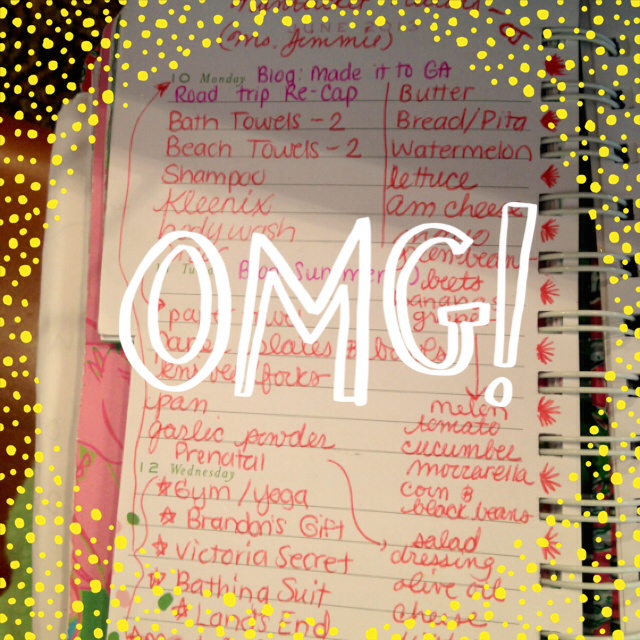 JUNE
(Ms. Jimmie)
10 Monday Blog: Made it to GA
Road trip Re-Cap
Butter
Bath Towels - 2
Bread/Pita
Beach Towels - 2
Watermelon
Shampoo
lettuce
Kleenix
am cheese
body wash
Blog Summer
beets
OMG!
grapes
plates & bowls
knives forks
pan
melon
garlic powder
tomato
Prenatal
cucumber
12 Wednesday
mozzarella
Gym/Yoga
corn &
black beans
Brandon's Gift
salad
dressing
Victoria Secret
olive oil
Bathing Suit
cheese
Land's End